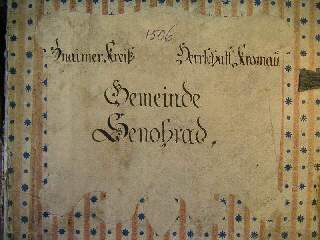 1506
Znaimer Kreiß Herrschaft Kromau
Gemeinde
Senohrad.